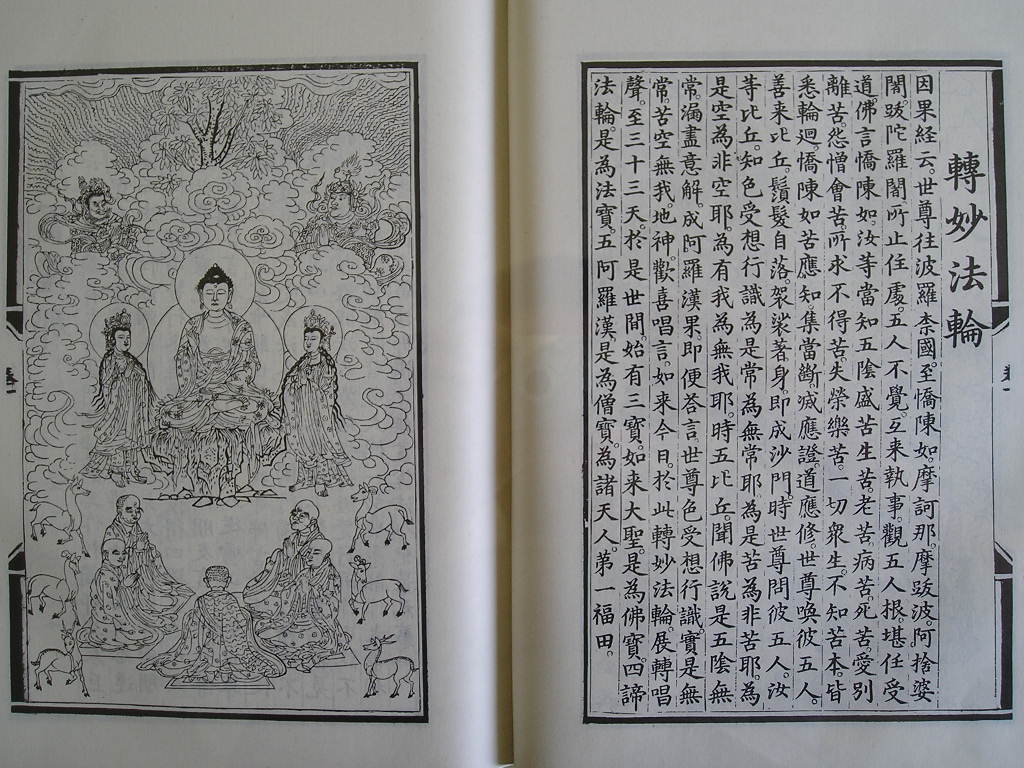 轉妙法輪
因果經云。世尊往波羅柰國。至憍陳如。摩訶那。摩跋波。阿捨婆
闍。跋陀羅闍。所止住處。五人不覺。互来執事。觀五人根。堪任受
道。佛言。憍陳如。汝等當知。五陰盛苦。生苦。老苦。病苦。死苦。愛別
離苦。怨憎會苦。所求不得苦。失榮樂苦。一切衆生。不知苦本。皆
悉輪迴。憍陳如。苦應知。集當斷。滅應證。道應修。世尊喚彼五人。
善来比丘。鬚髮自落。袈裟著身。即成沙門。時世尊問彼五人。汝
等比丘。知色受想行識。為是常為無常耶。為是苦為非苦耶。為
是空為非空耶。為有我為無我耶。時五比丘聞佛說是五陰無
常。漏盡意解。成阿羅漢果。即便答言。世尊。色受想行識。實是無
常。苦空無我。地神歡喜唱言。如来今日。於此轉妙法輪。展轉唱
聲。至三十三天。於是世間。始有三寶。如来大聖。是為佛寶。四諦
法輪。是為法寶。五阿羅漢。是為僧寶。為諸天人第一福田。